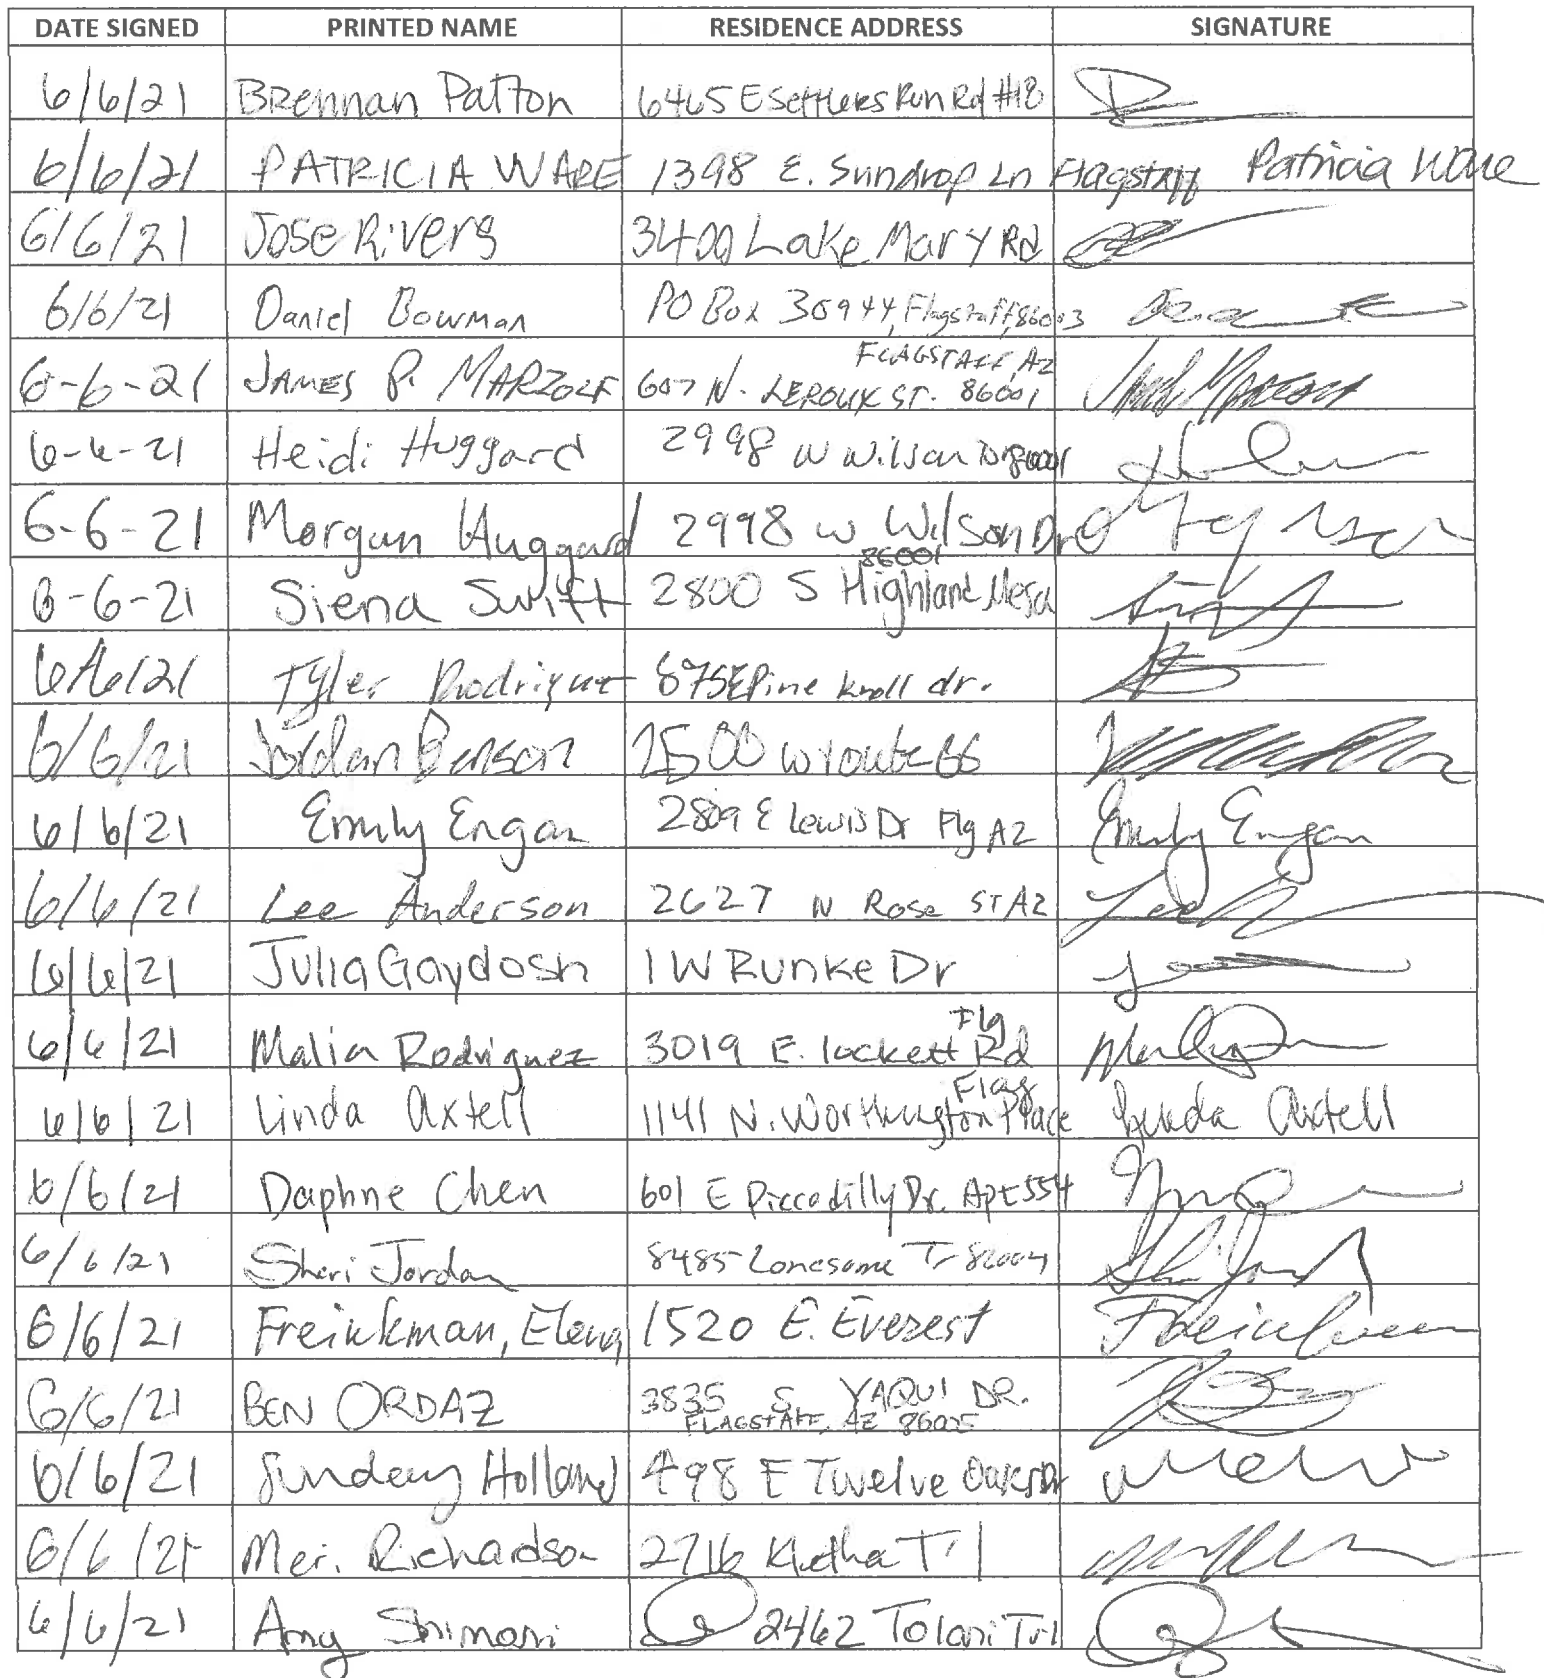 DATE SIGNED PRINTED NAME RESIDENCE ADDRESS SIGNATURE
6/6/21 Brennan Patton 6465 E Settlers Run Rd #18
6/6/21 PATRICIA WARE 1398 E. Sundrop Ln Flagstaff Patricia Ware
6/6/21 Jose Rivers 3400 Lake Mary Rd
6/6/21 Daniel Bowman PO Box 30944, Flagstaff 86003
FLAGSTAFF, AZ
6-6-21 JAMES P. MARZOLF 607 N. LEROUX ST. 86001
6-6-21 Heidi Huggard 2998 W Wilson Dr 86001
6-6-21 Morgan Huggard 2998 W Wilson Dr
86001
6-6-21 Siena Swift 2800 S Highland Mesa
6/6/21 Tyler 875 E Pine Knoll dr.
6/6/21 Jordan Benson 2500 W route 66
6/6/21 Emily Engan 2809 E Lewis Dr Flg AZ Emily Engan
6/6/21 Lee Anderson 2627 N Rose ST AZ
6/6/21 Julia Gaydosh 1 W Runke Dr
Flg
6/6/21 Malia Rodriguez 3019 E. lockett Rd
Flag
6/6/21 Linda Axtell 1141 N. Worthington Place Linda Axtell
6/6/21 Daphne Chen 601 E Piccadilly Dr. Apt 554
6/6/21 Sheri Jordan 8485 Lonesome Tr 86004
6/6/21 Freinkman, Elena 1520 E. Everest
6/6/21 BEN ORDAZ 3835 S YAQUI DR.
FLAGSTAFF, AZ 86005
6/6/21 Holland 498 E Twelve Oaks Dr
6/6/21 Meri Richardson 2716 Trl
6/6/21 Amy Shimoni 2462 Tolani Trl